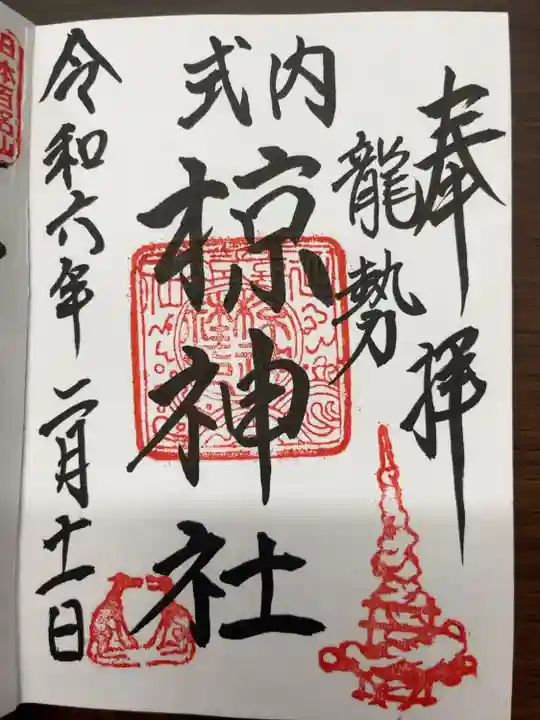 奉拝
龍勢
式内
椋神社
令和六年二月十一日
日本百名山